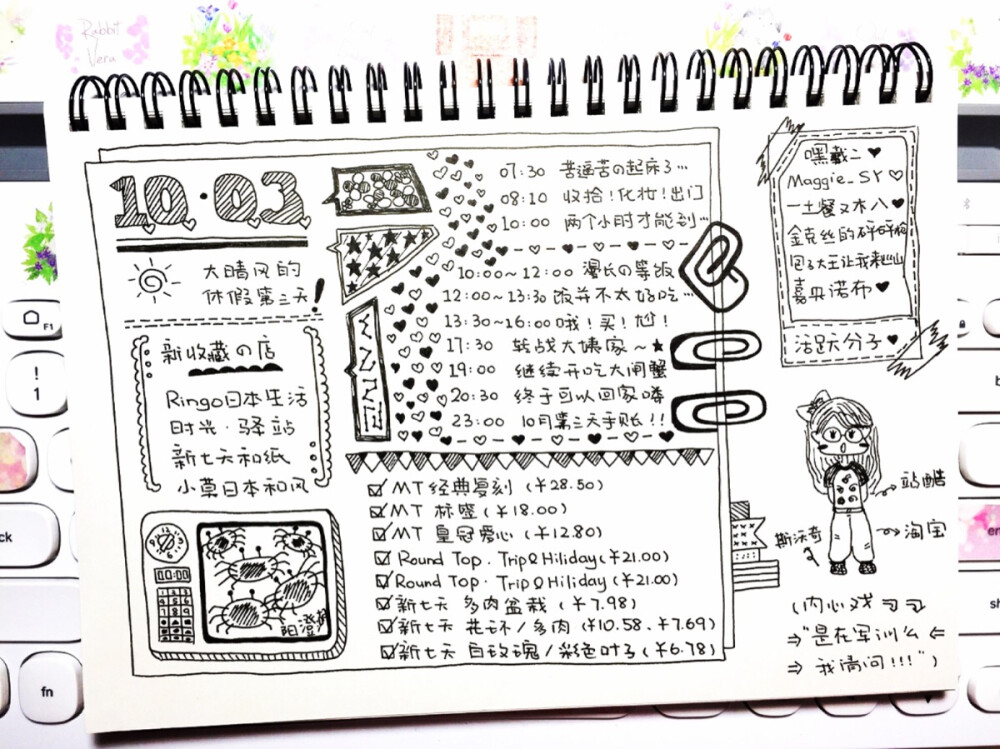 Rabbit
Vera
10·03
大晴风的
休假第三天!
新收藏の店
Ringo日本生活
时光·驿站
新七天和纸
小草日本和风
00:00
阳澄湖
07:30 苦逼苦の起床了…
08:10 收拾!化妆!出门
10:00 两个小时才能到…
10:00~12:00 漫长の等饭
12:00~13:30 饭并不太好吃…
13:30~16:00 哦!买!尬!
17:30 转战大姨家~★
19:00 继续开吃大闸蟹
20:30 终于可以回家喽
23:00 10月第三天手账!!
MT 经典复刻 (¥28.50)
MT (¥18.00)
MT 皇冠爱心 (¥12.80)
Round Top·Trip&Hiliday(¥21.00)
Round Top·Trip&Hiliday(¥21.00)
新七天 多肉盆栽 (¥7.98)
新七天 花环/多肉 (¥10.58、¥7.69)
新七天 白玫瑰/彩色叶子 (¥6.78)
嘿戴二♥
Maggie_SY♡
一土餐又木八♥
金克丝的砰砰枪
包子大王让我来巡山
嘉央诺布♥
活跃分子♥
站酷
淘宝
斯沃奇
(内心戏
⇒"是在军训么⇐
⇒我请问!!!")
F1
!
1
fn